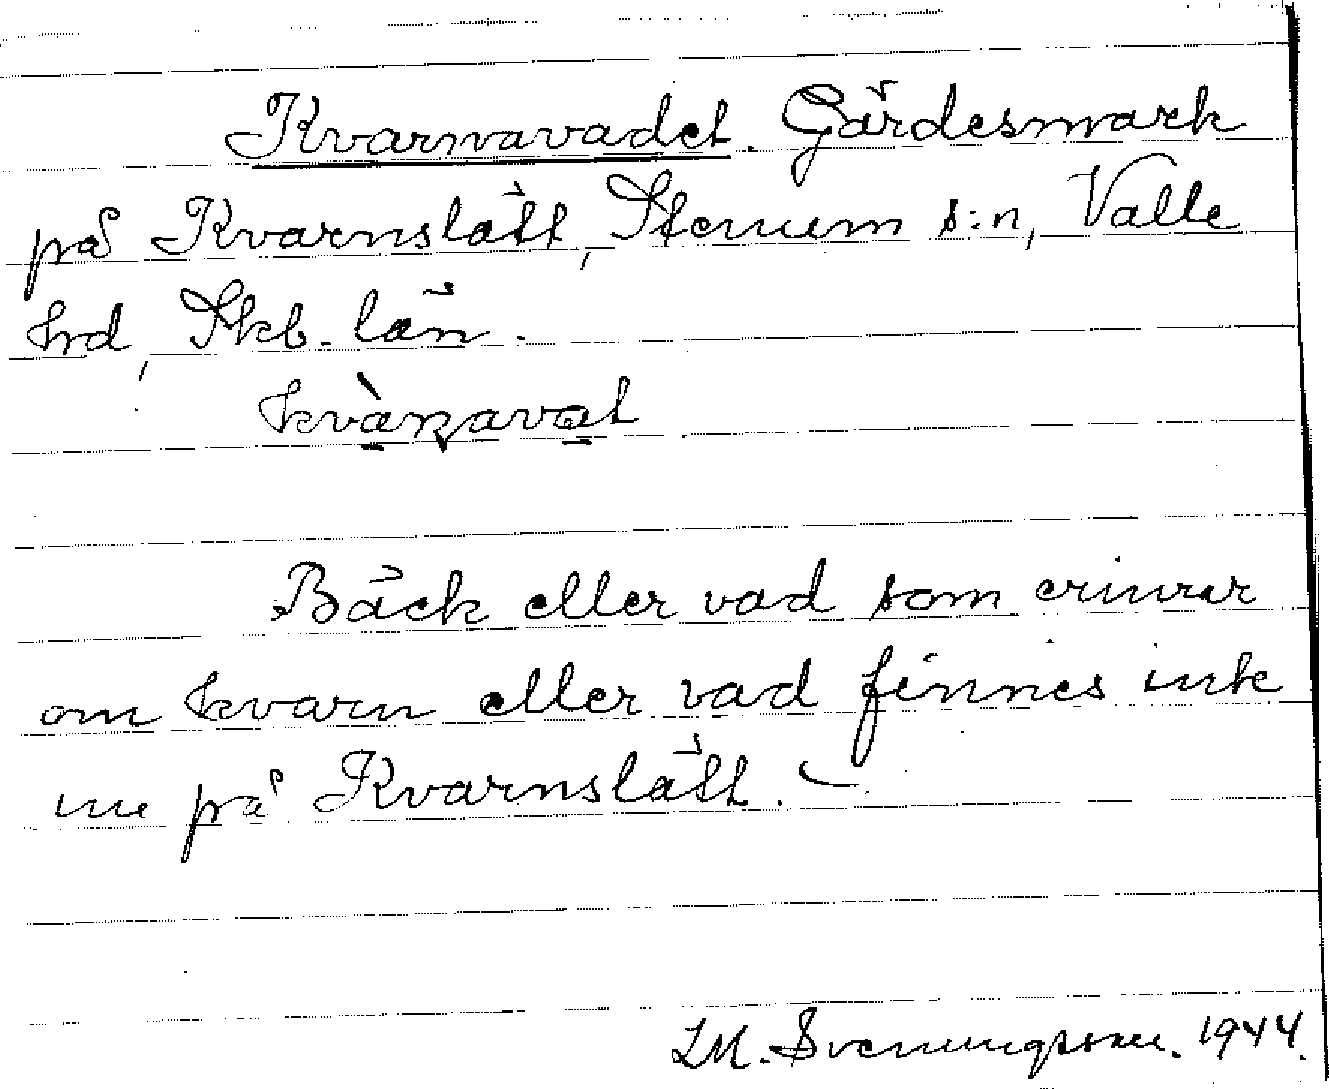 Kvarnavadet. Gärdesmark
på Kvarnslätt, Stenum s:n, Valle
hrd, Skb. län.
kvàn̨aval
Bäck eller vad som erinrar
om kvarn eller vad finnes inte
nu på Kvarnslätt. —
LM. Svenungsson. 1944.